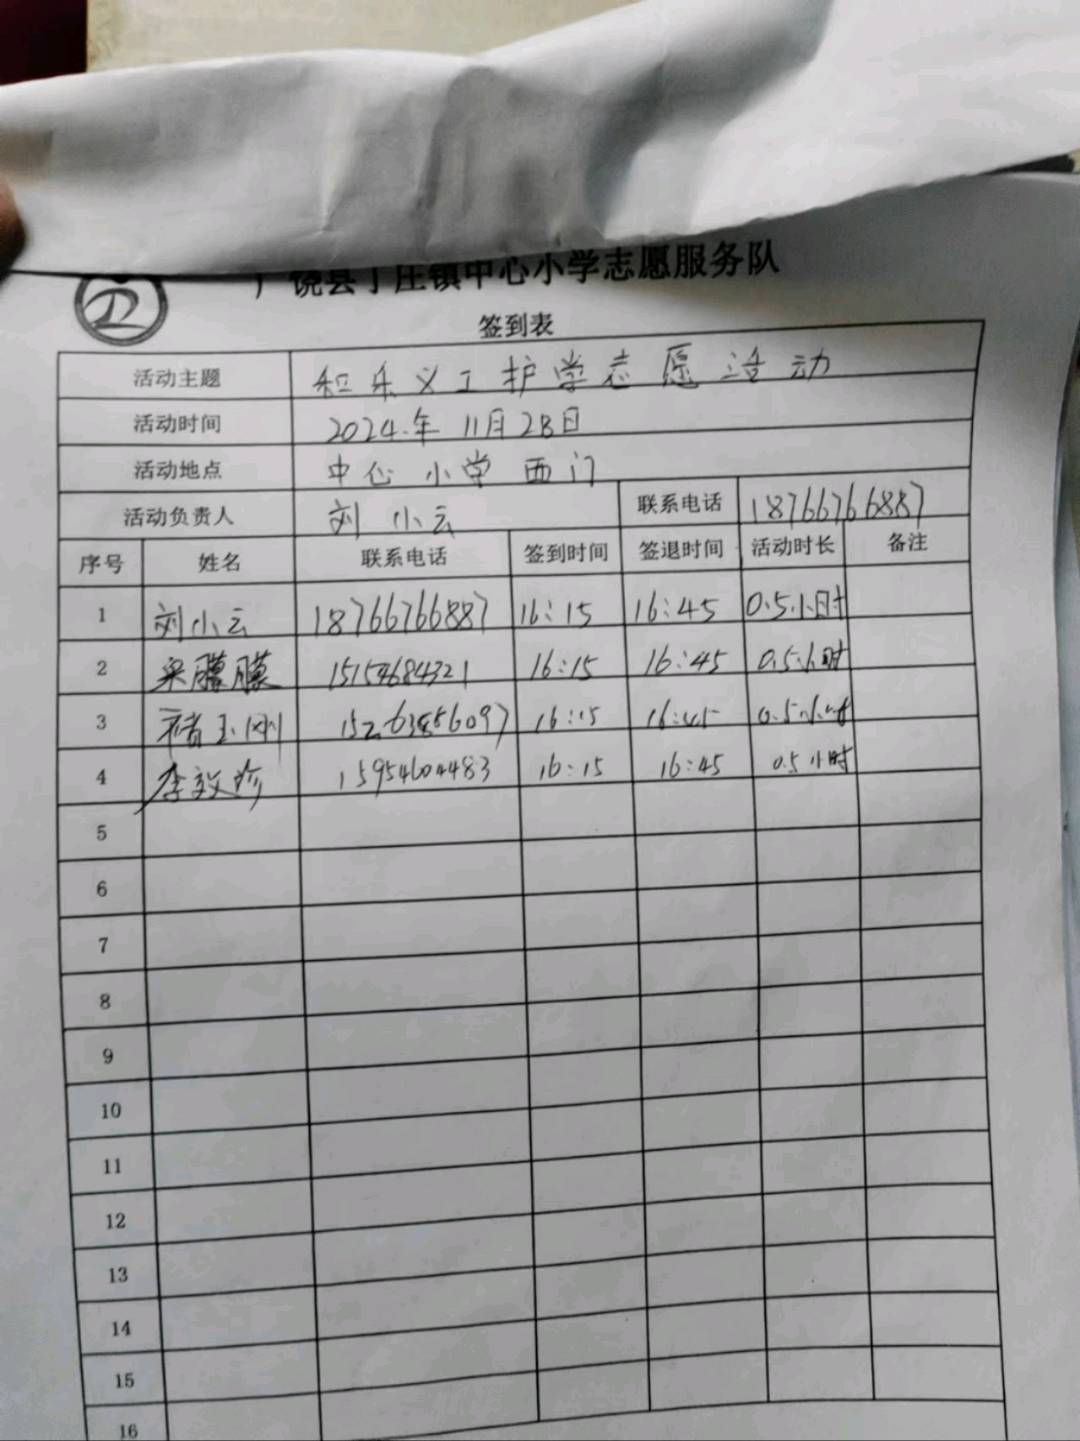 广饶县丁庄镇中心小学志愿服务队
签到表
活动主题 和乐义工护学志愿活动
活动时间 2024年11月28日
活动地点 中心小学西门
活动负责人 刘小云 联系电话 18766766887
序号 姓名 联系电话 签到时间 签退时间 活动时长 备注
1 刘小云 18766766887 16:15 16:45 0.5小时
2 朦朦 15154684321 16:15 16:45 0.5小时
3 褚玉刚 16:15 16:45 0.5小时
4 李效珍 15954604483 16:15 16:45 0.5小时
5
6
7
8
9
10
11
12
13
14
15
16